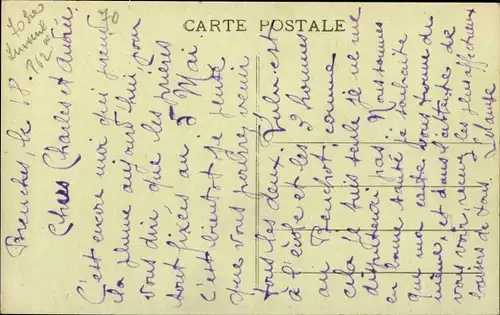 CARTE POSTALE
70
Frenches, le 18
Chers Charles et Aurore
C'est encore moi qui prend
la plume aujourd'hui pour
vous dire que les prières
sont fixées au 5 Mai
c'est bientôt je pense
que vous pourrez venir
tous les deux. Lulu est
à l'école et les 2 hommes
au comme
cela je suis seule je ne me
pas. Nous sommes
en bonne santé je souhaite
que ma carte vous trouve de
même, et dans l'attente de
vous voir, recevez les plus affectueux
baisers de tous.